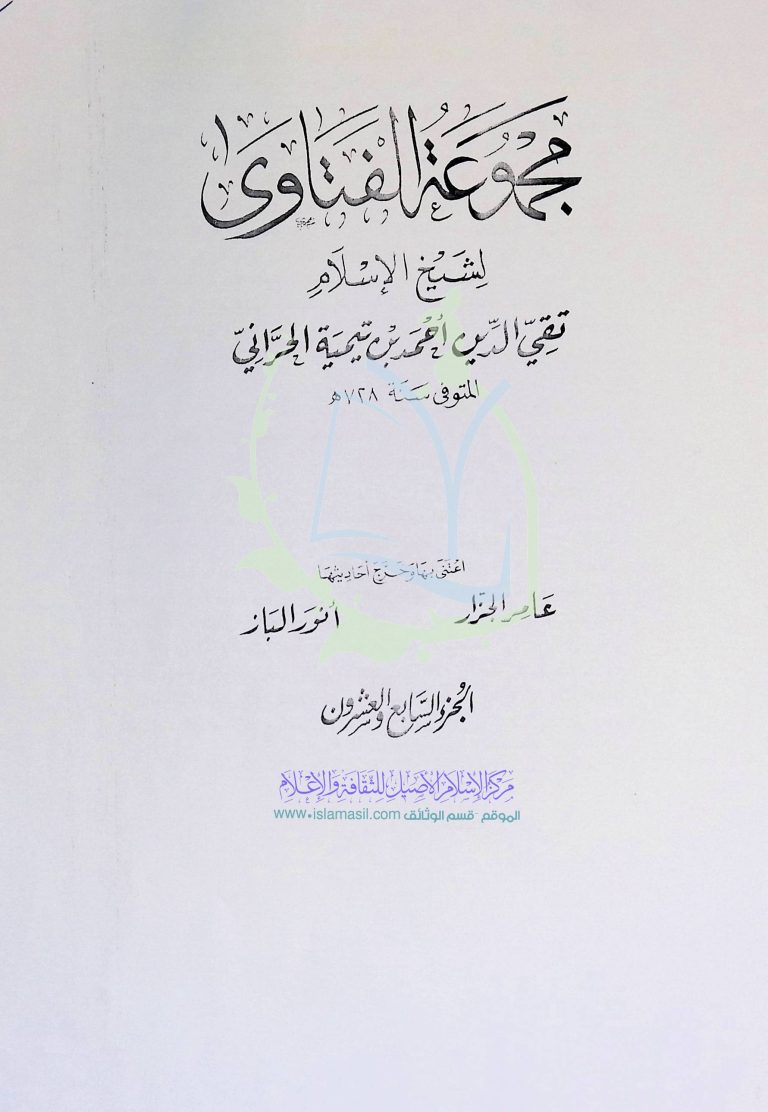 مَجْمُوعَةُ الْفَتَاوَىٰ
لِشَيْخِ الإِسْلَامِ
تَقِيّ الدِّين أَحْمَد بْن تَيمِيَة الحَرَّانِيّ
المتوفى سَنَة ٧٢٨هـ
اعْتَنَى بِهَا وَخَرَّجَ أحَادِيثَهَا
عَامِر الجَزَّار أنوَر البَاز
الجُزءُ السَّابِع وَالعِشرُون
مَركَز الإِسْلَام الأَصِيلِ لِلثَّقَافَةِ وَالإِعْلَامِ
الموقع - قسم الوثائق www.islamasil.com